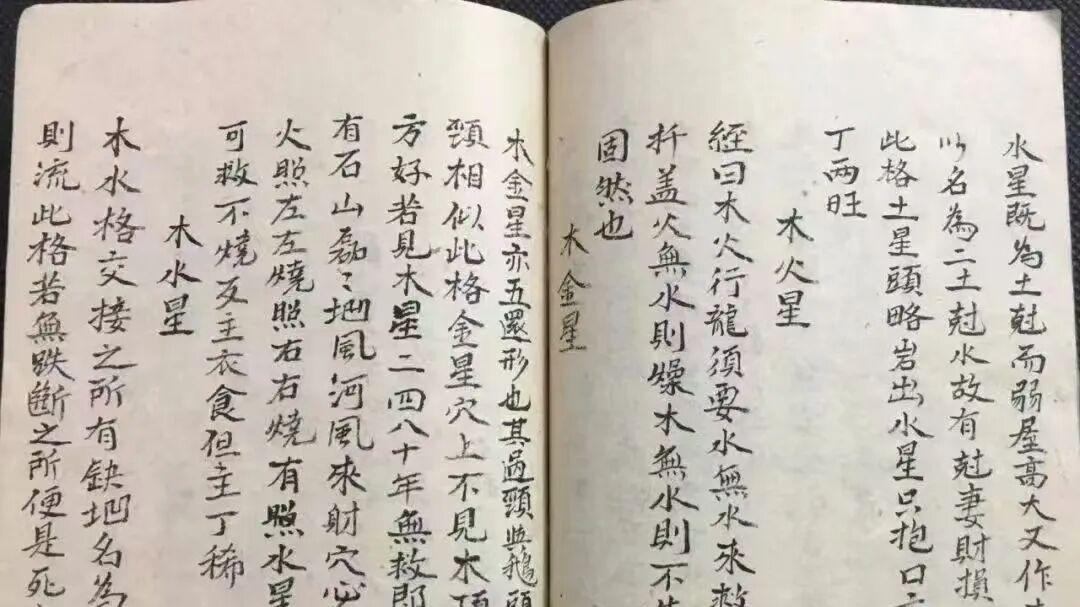 水星既為土尅而弱屋高大又作
以名為二土尅水故有尅妻財損
此格土星頭略岩出水星只抱口
丁两旺
木火星
經曰木火行龍須要水無水來救
扦盖火無水則燥木無水則不
固然也
木金星
木金星亦五還形也其過頸與鵝頭
頸相似此格金星穴上不見木頂
方好若見木星二四八十年無救郎
有石山磊〻坳風河風來射穴必
火照左左燒照右右燒有照水星
可救不燒反主衣食但主丁稀
木水星
木水格交接之所有缺坳名為
則流此格若無跌斷之所便是死